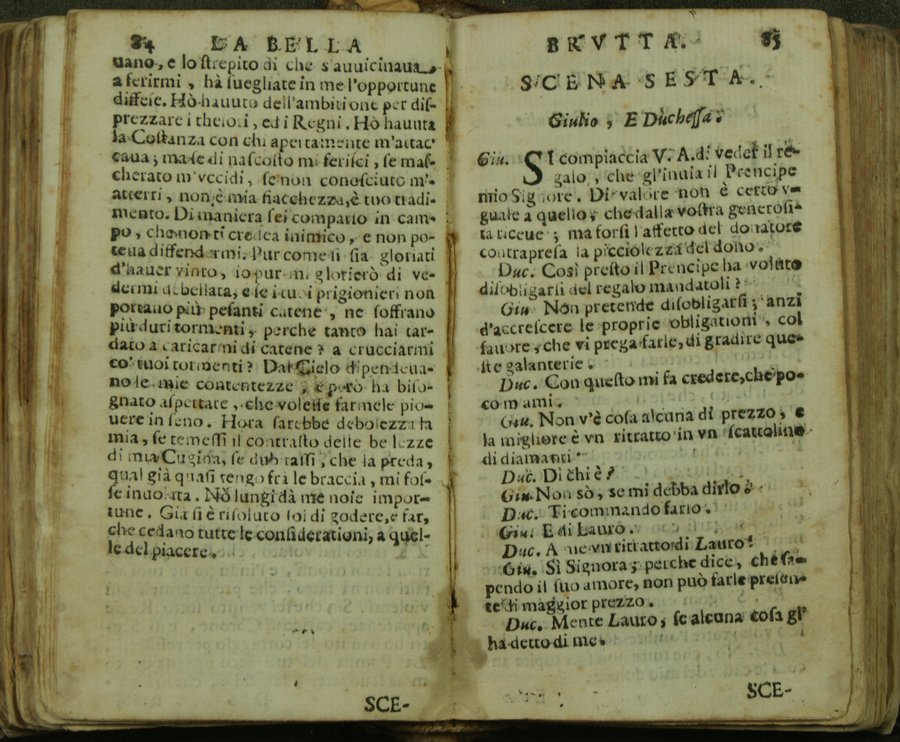 84 LA BELLA
uano, e lo strepito di che s'auuicinaua
a ferirmi, hà suegliate in me l'opportune
difese. Hò hauuto dell'ambitione per dis-
prezzare i thesori, ed i Regni. Hò hauuta
la Costanza con chi apertamente m'attac-
caua; ma se di nascosto mi ferisci, se mas-
cherato m'vccidi, se non conosciuto m'-
atterri, non è mia fiacchezza, è tuo tradi-
mento. Di maniera sei comparso in cam-
po, che non ti credea inimico, e non po-
teua diffendermi. Pur come si sia gloriati
d'hauer vinto, io pur mi glorierò di ve-
dermi debellata, e se i tuoi prigionieri non
portano più pesanti catene, ne soffrano
più duri tormenti, perche tanto hai tar-
dato a caricarmi di catene? a crucciarmi
co' tuoi tormenti? Dal Cielo dipendeua-
no le mie contentezze, e però ha biso-
gnato aspettare, che volesse farmele pio-
uere in seno. Hora sarebbe debolezza la
mia, se temessi il contrasto delle bellezze
di mia Cugina, se dubitassi, che la preda,
qual già quasi tengo frà le braccia, mi fos-
se inuolata. Nò lungi dà me noie impor-
tune. Già si è risoluto di godere, e far,
che cedano tutte le considerationi, a quel-
le del piacere.
SCE-
BRVTTA. 85
SCENA SESTA.
Giulio, E Duchessa.
Giu. SI compiaccia V. A. di veder il re-
galo, che gl'inuia il Prencipe
mio Signore. Di valore non è certo v-
guale a quello, che dalla vostra generosi-
tà riceue; ma forsi l'affetto del donatore
contrapresa la picciolezza del dono.
Duc. Così presto il Prencipe ha voluto
disobligarsi del regalo mandatoli?
Giu Non pretende disobligarsi; anzi
d'accrescere le proprie obligationi, col
fauore, che vi prega farle, di gradire que-
ste galanterie.
Duc. Con questo mi fa credere, che po-
co m ami.
Giu. Non v'è cosa alcuna di prezzo, e
la migliore è vn ritratto in vn scattolino
di diamanti
Duc. Di chi è?
Giu. Non sò, se mi debba dirlo.
Duc. Ti commando farlo.
Giu. E di Lauro.
Duc. A me vn ritratto di Lauro!
Giu. Sì Signora; perche dice, che sa-
pendo il suo amore, non può farle presen-
te di maggior prezzo.
Duc. Mente Lauro, se alcuna cosa gl'
ha detto di me.
SCE-